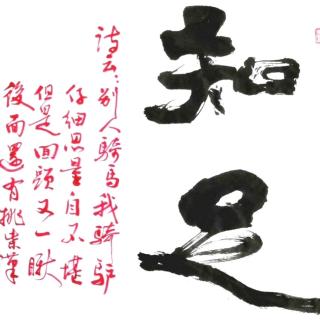 知足
詩云:别人騎馬我騎驴
仔細思量自不堪
但是回頭又一瞅
後面還有挑柴漢